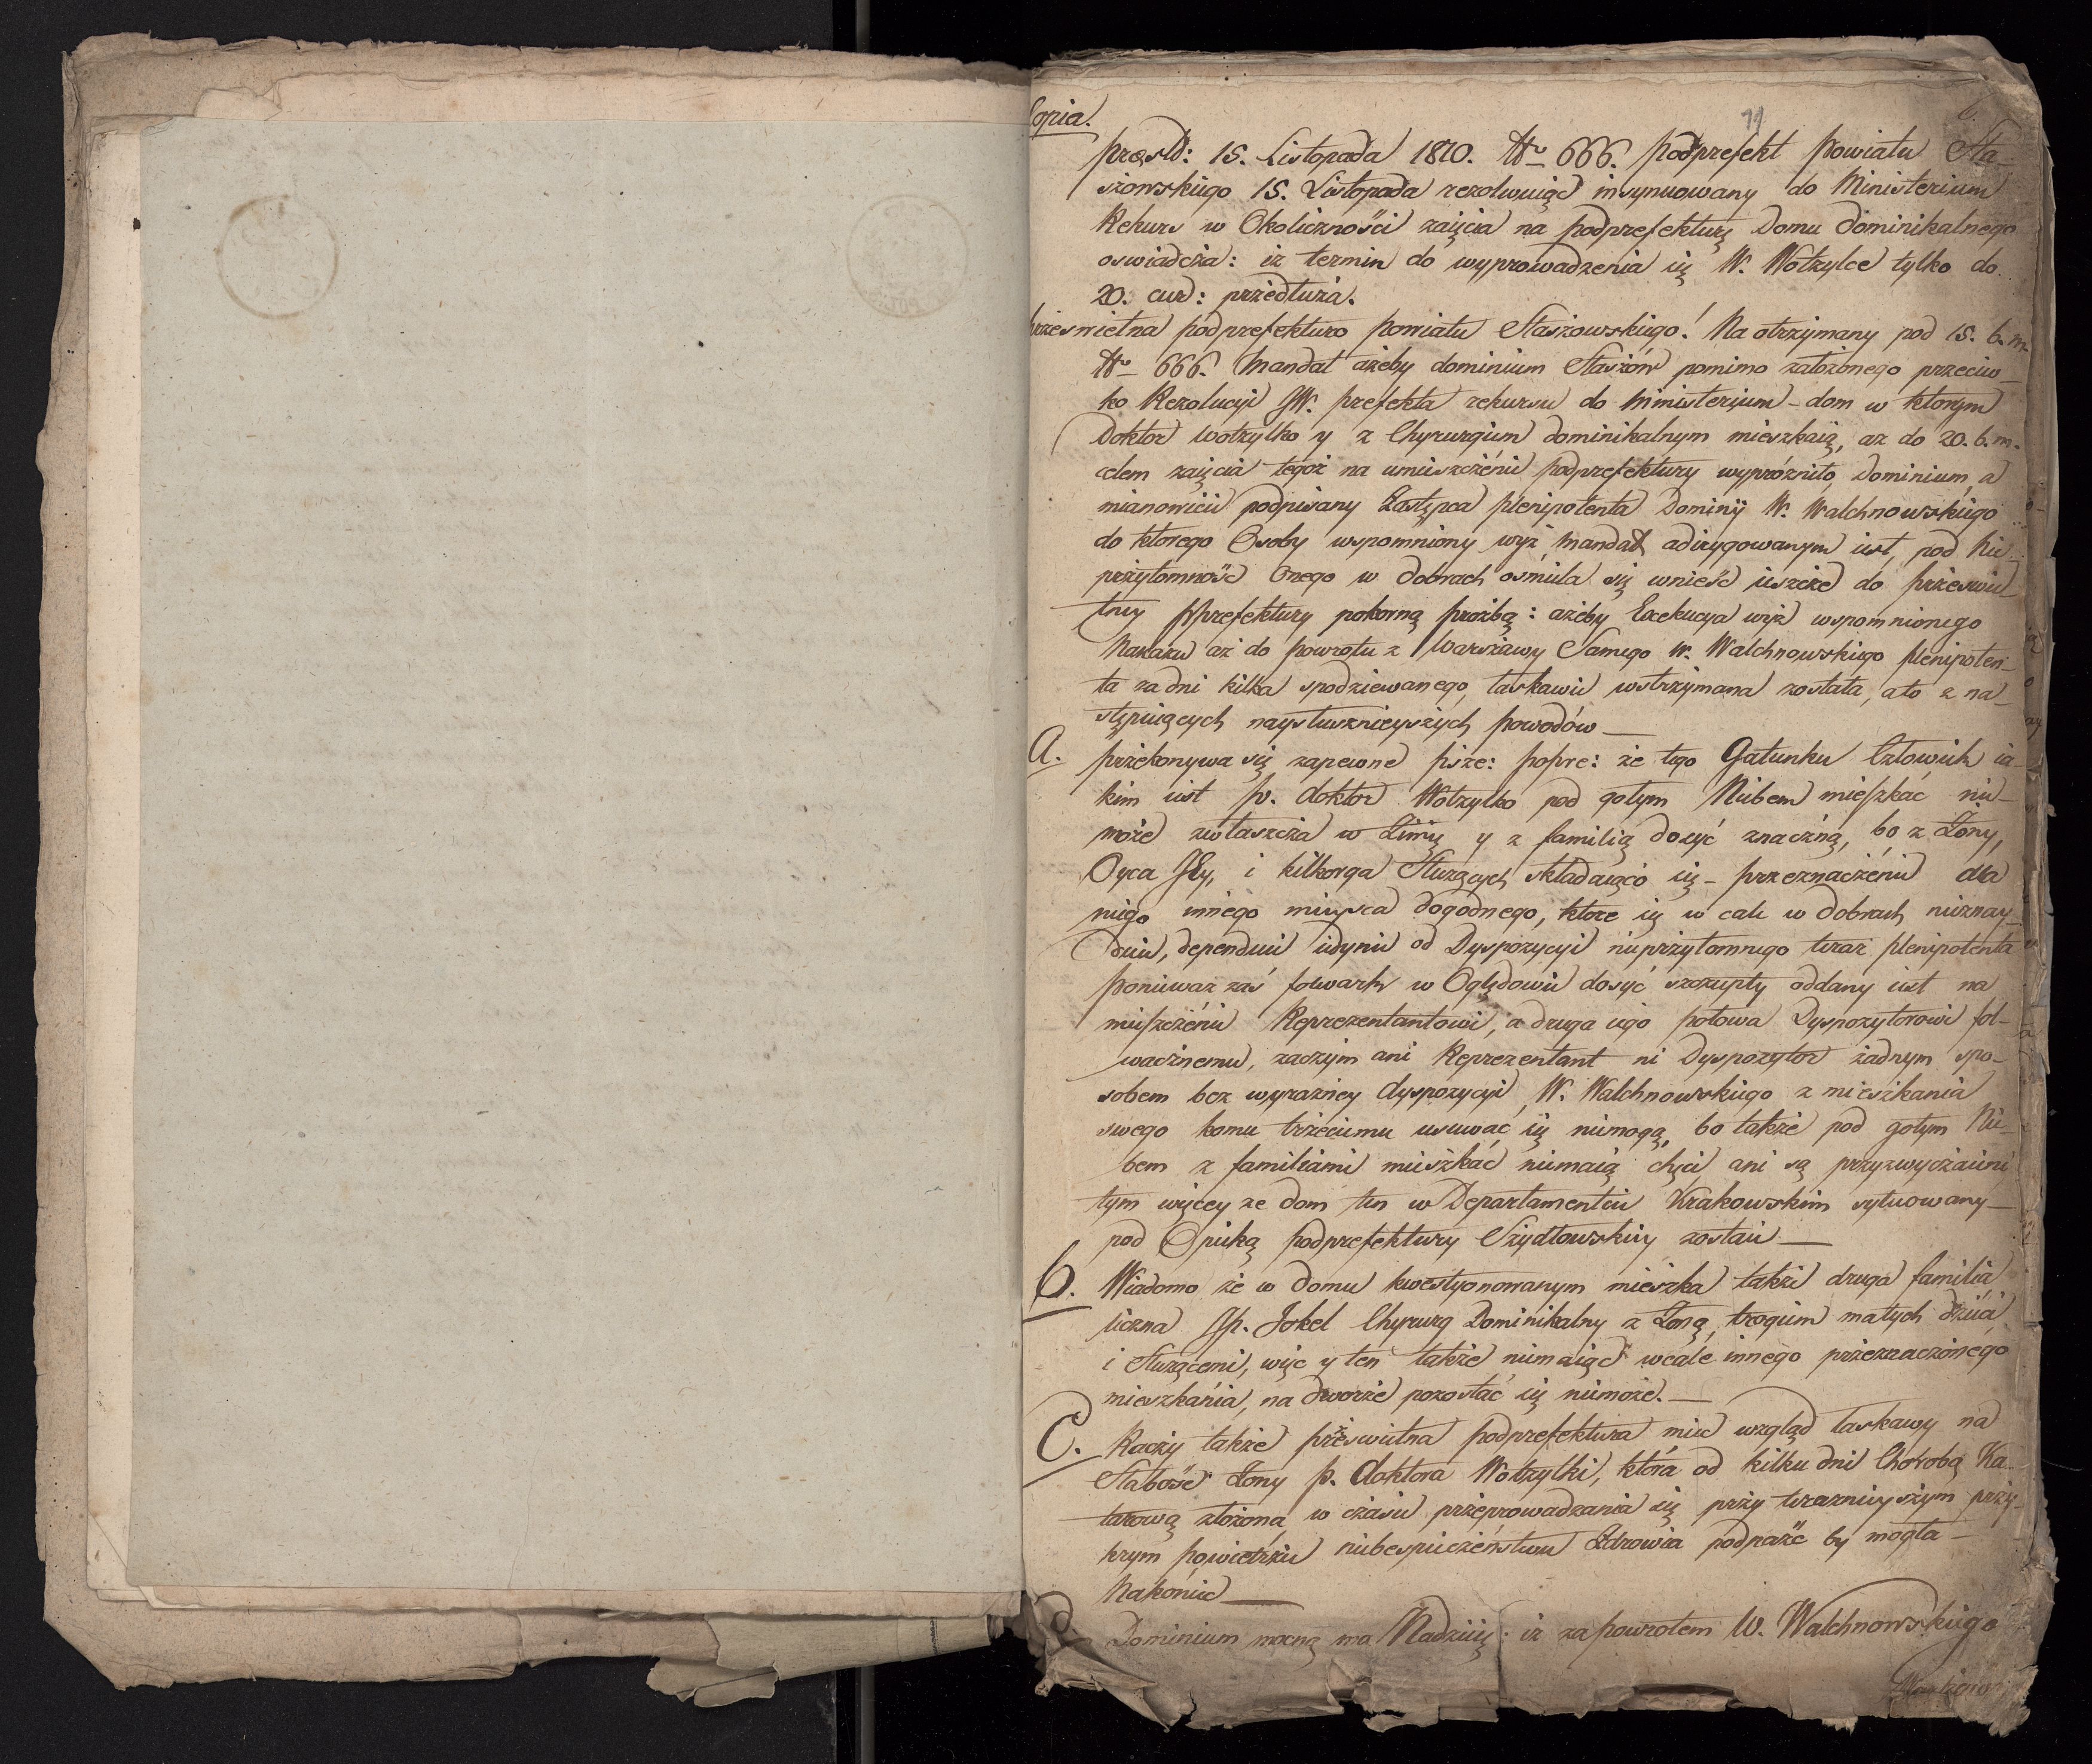 Copia.
11
præstd: 15. Listopada 1810. Nro 666. podprefekt Powiatu Sta-
szowskiego 15. Listopada rezolwuiąc insynuowany do Ministerium
Rekurs w Okoliczności zaięcia na podprefekturę Domu Dominikalnego
oswiadcża: iż termin do wyprowadzenia się W. Wotzylce tylko do
20. cur: przedłuża.
przeswietna podprefekturo Powiatu Staszowskiego! Na otrzymany pod 15. b. m.
Nro 666. Mandat ażeby dominium Staszów pomimo założonego przeciw-
ko Rezolucyi JW. prefekta rekursu do Ministerjum - dom w ktorym
Doktor Wotzylko y z Chyrurgiem dominikalnym mieszkaią, aż do 20. b. m.
celem zaięcia tegoż na umieszcżenie podprefektury wypróżniło, Dominium, a
mianowicie podpisany Zastępca plenipotenta Dominij W. Walchnowskiego
do ktorego Osoby wspomniony wyż Mandat adirygowanym iest, pod Nie-
przytomność Onego w Dobrach ośmiela się wnieść ieszcze do przeswie-
tney Pprefektury pokorną prożbą: ażeby Exekucya wyż wspomnionego
Nakazu aż do powrotu z Warszawy Samego W. Walchnowskiego plenipoten-
ta za dni kilka spodziewanego, łaskawie wstrzymana została, a to z na-
stępuiących naysłusznieyszych powodów —
a. przekonywa się zapewne prze: popre: że tego Gatunku Człowiek ia-
kim iest P. doktor Wotzylko pod gołym Niebem mieszkać nie-
może zwłaszcża w Zimię y z familią dosyć znaczną, bo z Żony,
Oyca JEy, i kilkorga Służących składaiąco się - przeznaczenie dla
niego innego mieysca dogodnego, ktore się w cale w dobrach nieznay-
duie, dependuie iedynie od Dyspozycyi nieprzytomnego teraz plenipotenta
ponieważ zaś folwark w Oględowie dosyć szczupły oddany iest na
mieszczenie Reprezentantowi, a druga iego połowa Dyspozytorowi fol-
wacznemu, zaczym ani Reprezentant ni Dyspozytor żadnym spo-
sobem bez wyrazney dyspozycyi W. Walchnowskiego z mieszkania
swego komu trzeciemu usuwać się niemogą, bo także pod gołym Nie-
bem z familiami mieszkać niemaią chęci ani są przyzwyczaieni
tym więcey że dom ten w Departamencie Krakowskim sytuowany —
pod Opieką podprefektury Szydłowskiey zostaie —
b. Wiadomo że w domu kwestyonowanym mieszka także druga familia
liczna JP. Jokel Chyrurg Dominikalny z Żoną, trogiem małych dzieci
i Służącemi, więc y ten także niemaiąc wcale innego przeznaczonego
mieszkania, na dworze pozostać się niemoże. —
C. Raczy także przeswietna podprefektura mieć wzgląd łaskawy na
Słabość Żony P. doktora Wotzylki, która od kilku dni Chorobą Ka-
tarową złożona w czasie przeprowadzania się przy teraznieyszym przy-
krym powietrzu niebespieczeństwu Zdrowia podpaść by mogła —
Nakoniec —
D. Dominium mocną ma Nadzieię: iż za powrotem W. Walchnowskiego